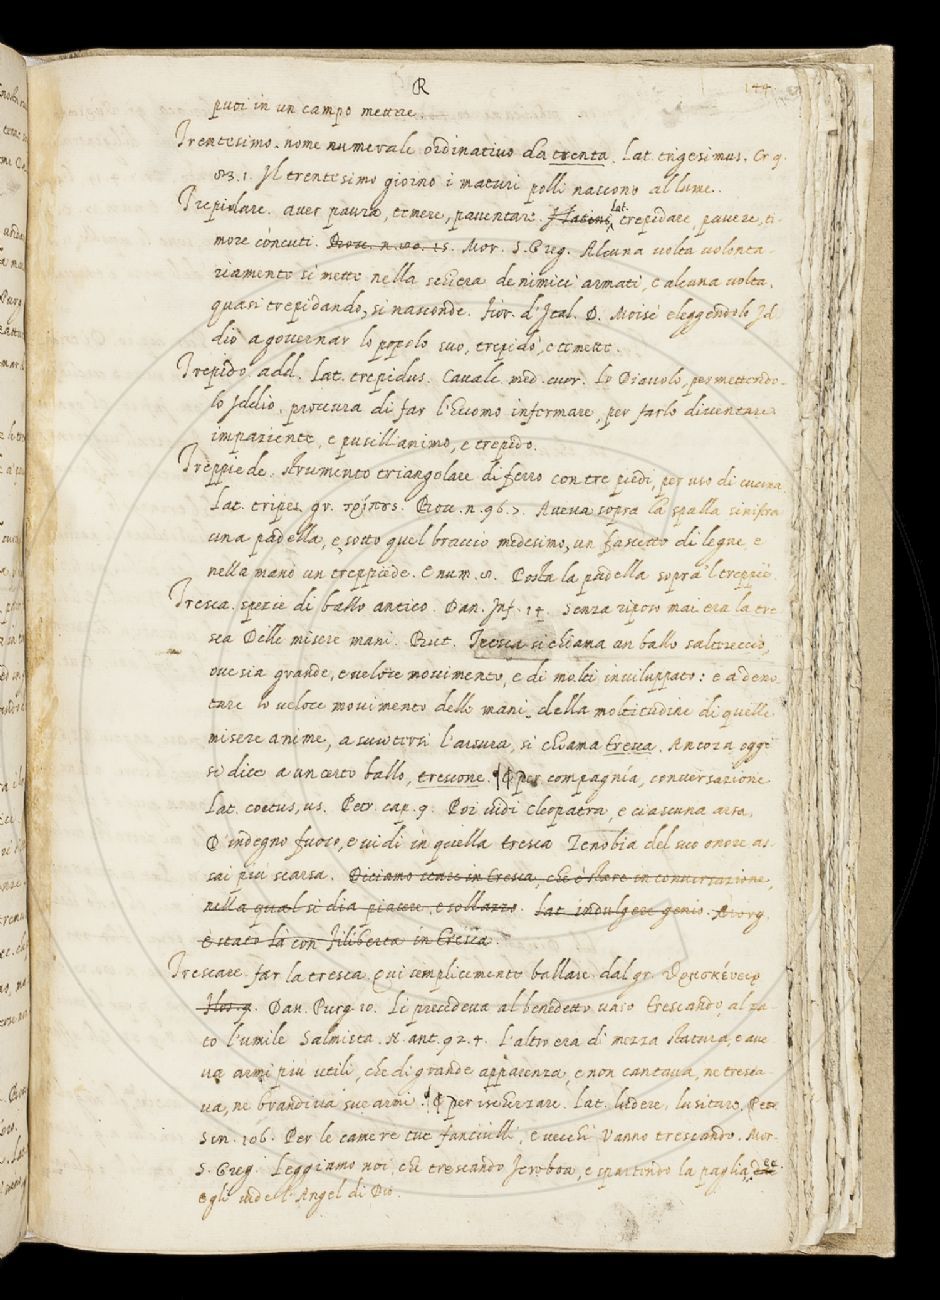 R 144
puoi in un campo mettere.
Trentesimo. nome numerale ordinatiuo da trenta. Lat. trigesimus. Cr. 9.
83. 1. Il trentesimo giorno i maturi polli nascono al lume.
Trepidare. auer paura, temere, pauentare. I latini Lat. trepidare, pauere, ti-
more concuti. Bocc. n. 80. 15. Mor. S. Greg. Alcuna uolta uolonta-
riamente si mette nella schiera de nimici armati, e alcuna uolta,
quasi trepidando, si nasconde. Fior. d'Ital. D. Moise eleggendolo Id-
dio a gouernar lo popolo suo, trepidò, e temette.
Trepido. add. Lat. trepidus. Caualc. med. cuor. Lo Diauolo, permettendo-
lo Iddio, procura di far l'huomo infermare, per farlo diuentare
impaziente, e pusillanimo, e trepido.
Treppiede. strumento triangolare di ferro con tre piedi, per uso di cucina
Lat. tripes. gr. τρίπους. Bocc. n. 96. 7. Aueua sopra la spalla sinistra
una padella, e sotto quel braccio medesimo, un fascetto di legne, e
nella mano un treppiede. E num. 8. Posta la padella sopra 'l treppiè.
Tresca. spezie di ballo antico. Dan. Inf. 14. Senza riposo mai era la tre-
sca Delle misere mani. But. Tresca si chiama un ballo saltereccio,
oue sia grande, e ueloce mouimento, e di molti inuiluppato: e a deno-
tare lo ueloce mouimento delle mani, della moltitudine di quelle
misere anime, a scuotersi l'arsura, si chiama tresca. Ancora oggi
si dice a un certo ballo, trescone. ¶ per compagnia, conuersazione
Lat. coetus, us. Petr. cap. 9. Poi uidi Cleopatra, e ciascuna arsa,
D'indegno fuoco, e uidi in quella tresca Zenobia del suo onore as-
sai più scarsa. Diciamo stare in tresca, che è stare in conuersazione,
nella qual si dia piacere, e sollazzo. Lat. indulgere genio.
è stato là con Filiberta in tresca.
Trescare. far la tresca. qui semplicemente ballare. dal gr.
Dan. Purg. 10. Lì precedeua al benedetto uaso Trescando, alza-
to l'umile Salmista. N. ant. 92. 4. L'altro era di mezza statura, e aue-
ua armi più utili, che di grande apparenza, e non cantaua, ne tresca-
ua, ne brandiua sue armi. ¶ per ischerzare. Lat. ludere, lusitare. Petr.
Son. 106. Per le camere tue fanciulli, e uecchi Vanno trescando. Mor.
S. Greg. Leggiamo noi, che trescando Ieroboa, e spartendo la paglia, 
egli uide l'Angel di Dio.